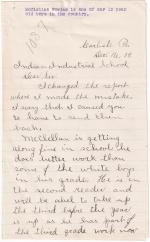 McClellan Powless is one of our 12 year
old boys in the country.
Carlisle Pa.
Dec 14, 18
Indian Industrial School
Dear Sir.
I changed the report
where it made the mistake.
I sorry that it caused you
to have to send them
back.
McClellan is getting
along fine in school. He
does better work than
some of the white boys
in his grade. He is
in the second reader and
will be able to take up
the third before the year
is up as is his part of
the third grade work now